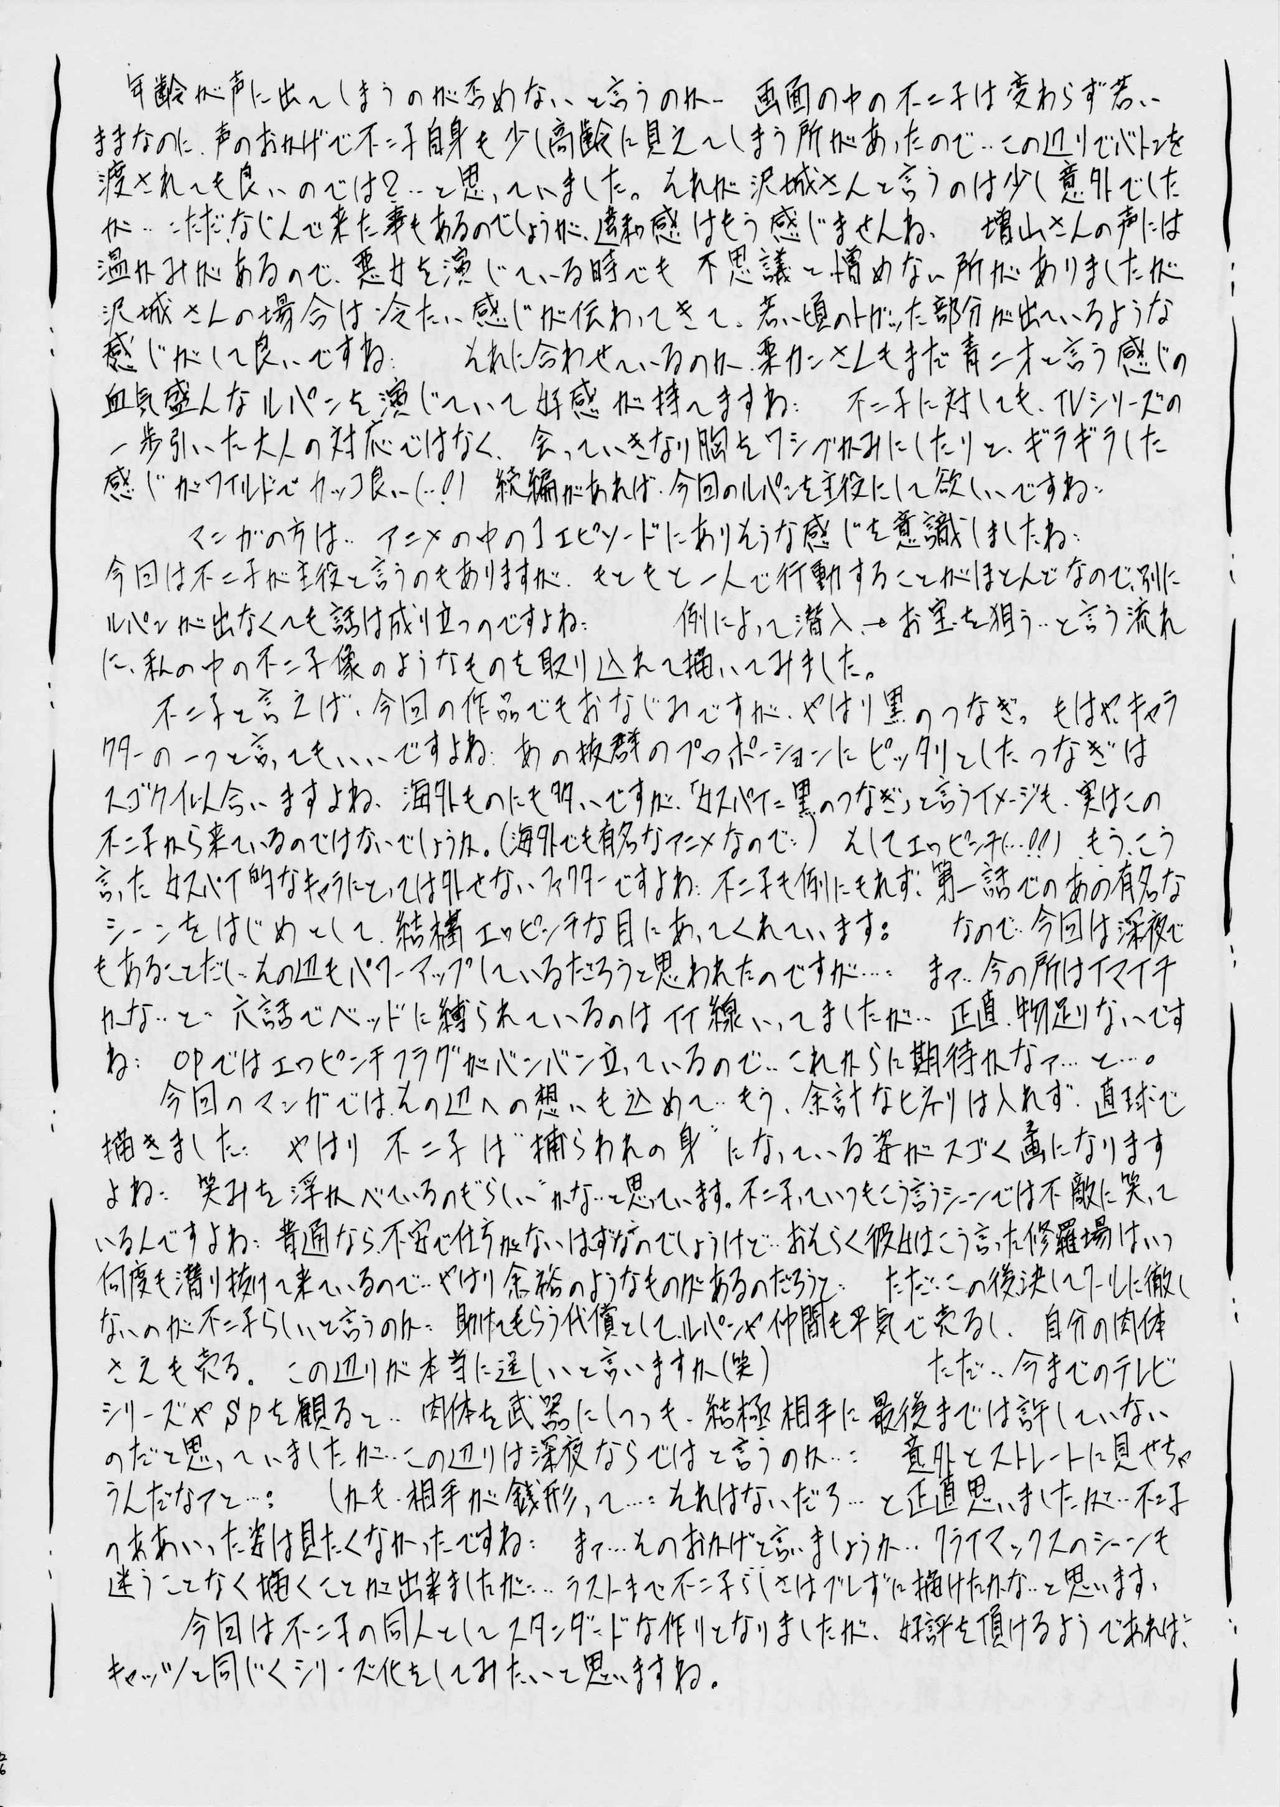 年齢が声に出てしまうのが否めないと言うのか… 画面の中の不二子は変わらず若い
ままなのに、声のおかげで不二子自身も少し高齢に見えてしまう所があったので‥この辺りでバトンを
渡されても良いのでは?‥と思っていました。それが沢城さんと言うのは少し意外でした
が‥ なじんで来た事もあるのでしょうが、違和感はもう感じませんね、 増山さんの声には
温かみがあるので、悪女を演じている時でも 不思議と憎めない所がありましたが
沢城さんの場合は冷たい感じが伝わってきて、若い頃のトガッた部分が出ているような
感じがして良いですね‥ それに合わせているのか、栗カンさんもまだ青二才と言う感じの
血気盛んなルパンを演じていて好感が持てますね‥ 不二子に対しても、TVシリーズの
一歩引いた大人の対応ではなく、会っていきなり胸をワシヅかみにしたりと、ギラギラした
感じがワイルドでカッコ良い(‥!) 続編があれば、今回のルパンを主役にして欲しいですね‥
マンガの方は‥ アニメの中の1エピソードにありそうな感じを意識しましたね‥
今回は不二子が主役と言うのもありますが、もともと一人で行動することがほとんどなので、別に
ルパンが出なくても話は成り立つのですよね‥ 例によって潜入→お宝を狙う‥と言う流れ
に、私の中の不二子像のようなものを取り込れて描いてみました。
不二子と言えば、今回の作品でもおなじみですが、やはり黒のつなぎっ もはや、キャラ
クターの一つと言ってもいいですよね‥ あの抜群のプロポーションにピッタリとしたつなぎは
スゴク似合いますよね、海外ものにも多いですが、「女スパイ=黒のつなぎ」と言うイメージも、実はこの
不二子から来ているのではないでしょうか。(海外でも有名なアニメなので‥) そしてエロピンチ(…!!) もう、こう
言った女スパイ的なキャラにとっては外せないファクターですよね‥ 不二子も例にもれず、第一話でのあの有名な
シーンをはじめとして、結構エロピンチな目にあってくれています。 なので‥今回は深夜で
もあることだし‥その辺もパワーアップしているだろうと思われたのですが…‥ まァ‥今の所はイマイチ
かな‥と‥ 六話でベッドに縛られているのはイイ線いってましたが‥ 正直、物足りないです
ね‥ OPではエロピンチフラグがバンバン立っているので‥これからに期待かなァ…と…。
今回のマンガでは、その辺への想いも込めて‥もう、余計なヒネリは入れず、直球で
描きました‥ やはり 不二子は"捕らわれの身"になっている姿がスゴく画になります
よね‥ 笑みを浮かべているのも"らしい"かな‥と思っています。不二子っていつもこう言うシーンでは不敵に笑って
いるんですよね‥ 普通なら、不安で仕方がないはずなのでしょうけど‥おそらく彼女はこう言った修羅場はいつ
何度も潜り抜けて来ているので‥やはり余裕のようなものがあるのだろうと‥ ただ‥この後決してクールに徹し
ないのが不二子らしいと言うのか‥ 助けてもらう代償として、ルパンや仲間も平気で売るし、自分の肉体
さえも売る。この辺りが本当に逞しいと言いますか(笑) ただ‥今までのテレビ
シリーズやSPを観ると‥ 肉体を武器にしつつも、結極相手に最後までは許していない
のだと思っていましたが…この辺りは深夜ならではと言うのか…‥ 意外とストレートに見せちゃ
うんだなァと…‥ しかも、相手が銭形って…‥それはないだろ…と正直思いましたが‥不二子
のああいった姿は見たくなかったですね‥ まァ…そのおかげと言いましょうか‥クライマックスのシーンも
迷うことなく描くことが出来ましたが… ラストまで不二子らしさはブレずに描けたかな‥と思います、
今回は不二子の同人としてスタンダードな作りとなりましたが、好評を頂けるようであれば、
キャッツと同じくシリーズ化をしてみたいと思いますね。
26